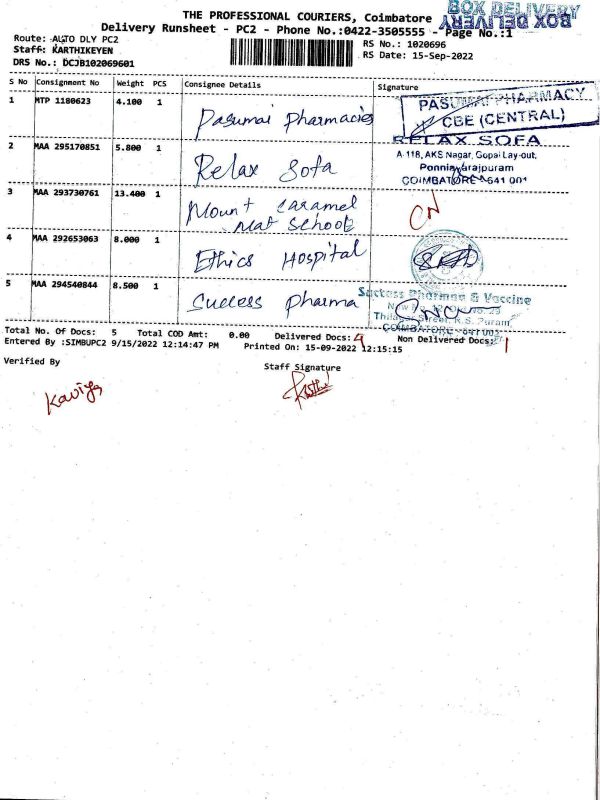 THE PROFESSIONAL COURIERS, Coimbatore
BOX DELIVERY
BOX DELIVERY
Delivery Runsheet - PC2 - Phone No.:0422-3505555 - Page No.:1
Route: AUTO DLY PC2
RS No.: 1020696
Staff: KARTHIKEYEN
RS Date: 15-Sep-2022
DRS No.: DCJB102069601
S No Consignment No Weight PCS Consignee Details Signature
1 MTP 1180623 4.100 1 Pasumai Pharmacies
PASUMAI PHARMACY
CBE (CENTRAL)
2 MAA 295170851 5.800 1 Relax Sofa
RELAX SOFA
A-118, AKS Nagar, Gopal Lay-out,
Ponniyarajpuram
COIMBATORE-641 001
3 MAA 293730761 13.400 1 Mount Caramel
Mat School
CN
4 MAA 292653063 8.000 1 Ethics Hospital
5 MAA 294540844 8.500 1 Success Pharma
Success Pharman & Vaccine
Street, R.S. Puram,
COIMBATORE - 641 002
Total No. Of Docs: 5 Total COD Amt: 0.00 Delivered Docs: 4 Non Delivered Docs: 1
Entered By :SIMBUPC2 9/15/2022 12:14:47 PM Printed On: 15-09-2022 12:15:15
Verified By Staff Signature
Kaviya